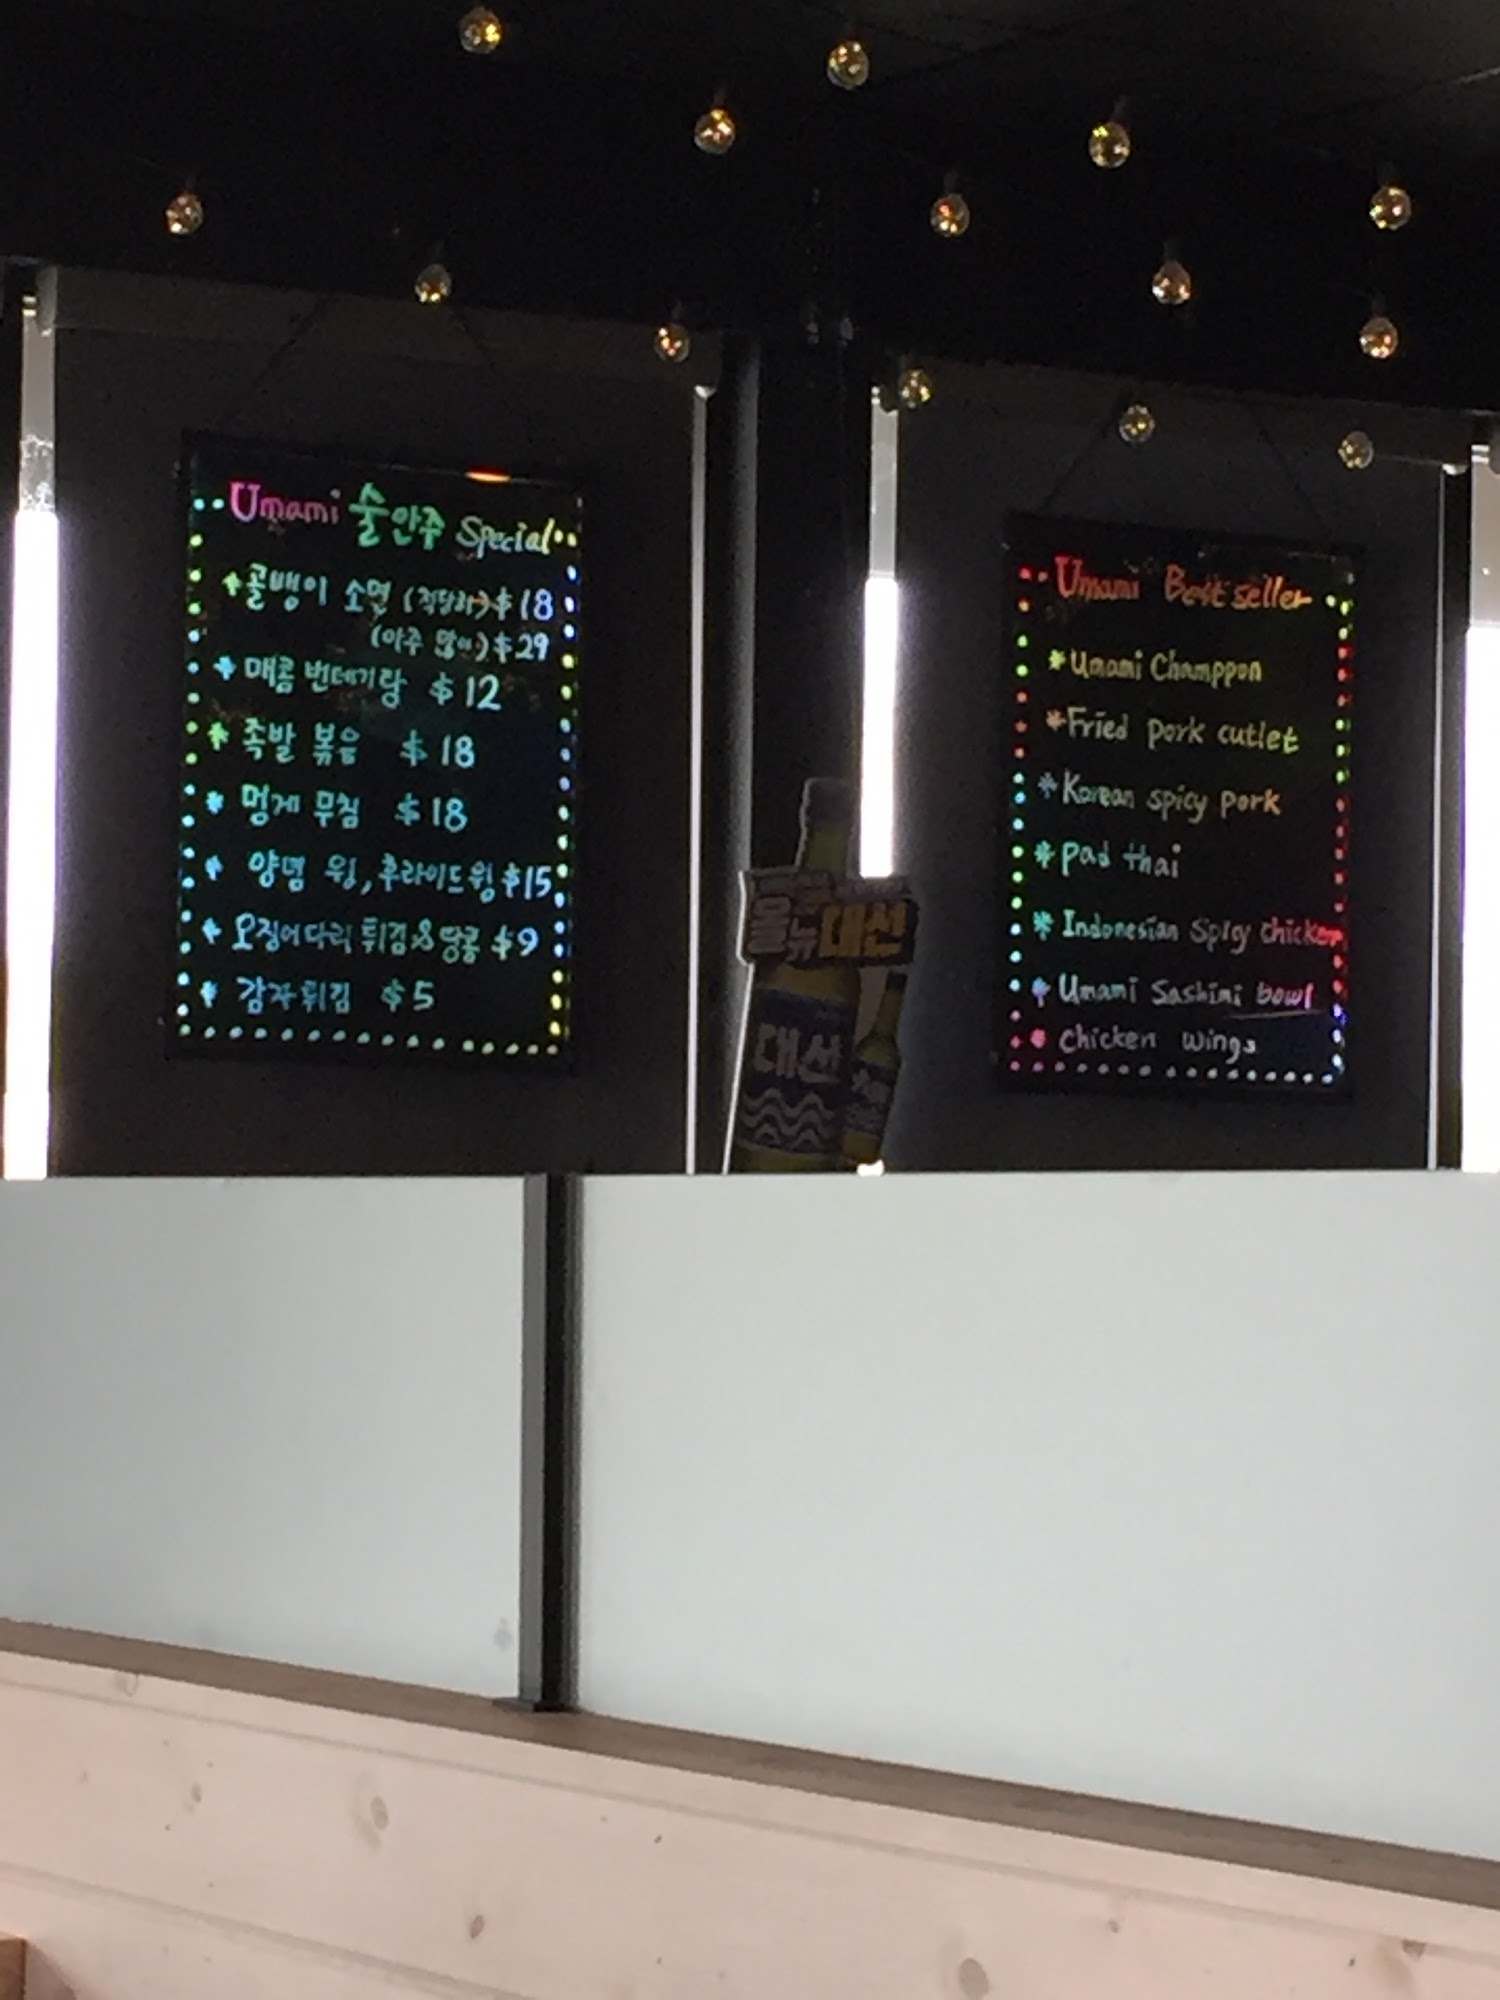 Umami 술안주 Special
골뱅이 소면 (적당히) $18
(아주 많이) $29
매콤 번데기탕 $12
족발 볶음 $18
멍게 무침 $18
양념 윙, 후라이드윙 $15
오징어다리 튀김 & 땅콩 $9
감자튀김 $5
올뉴대선
대선
Umami Best seller
*Umami Champpon
*Fried pork cutlet
*Korean spicy pork
*Pad thai
*Indonesian Spicy chicken
*Umami Sashimi bowl
chicken wings